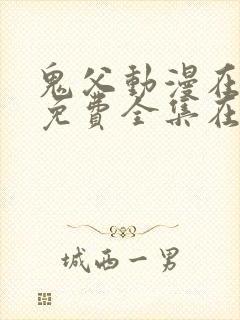 鬼父動漫在
免費全集在
城西一男